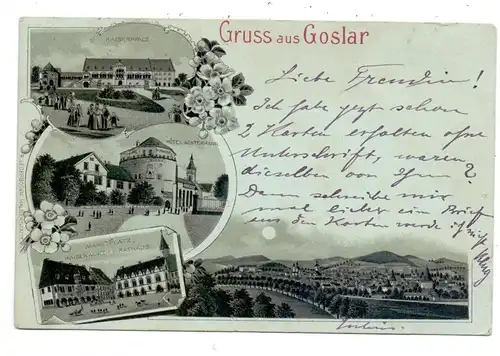 Gruss aus Goslar
KAISERHAUS
HOTEL ACHTERMANN
MARKTPLATZ
KAISERWORTH RATHAUS
Liebe Freundin!
Ich habe jetzt schon
2 Karten erhalten ohne
Unterschrift, waren
dieselben von Ihnen?
Dann schreibe mir
mal lieber ein Brief
aus den Karten werde ich nicht
klug